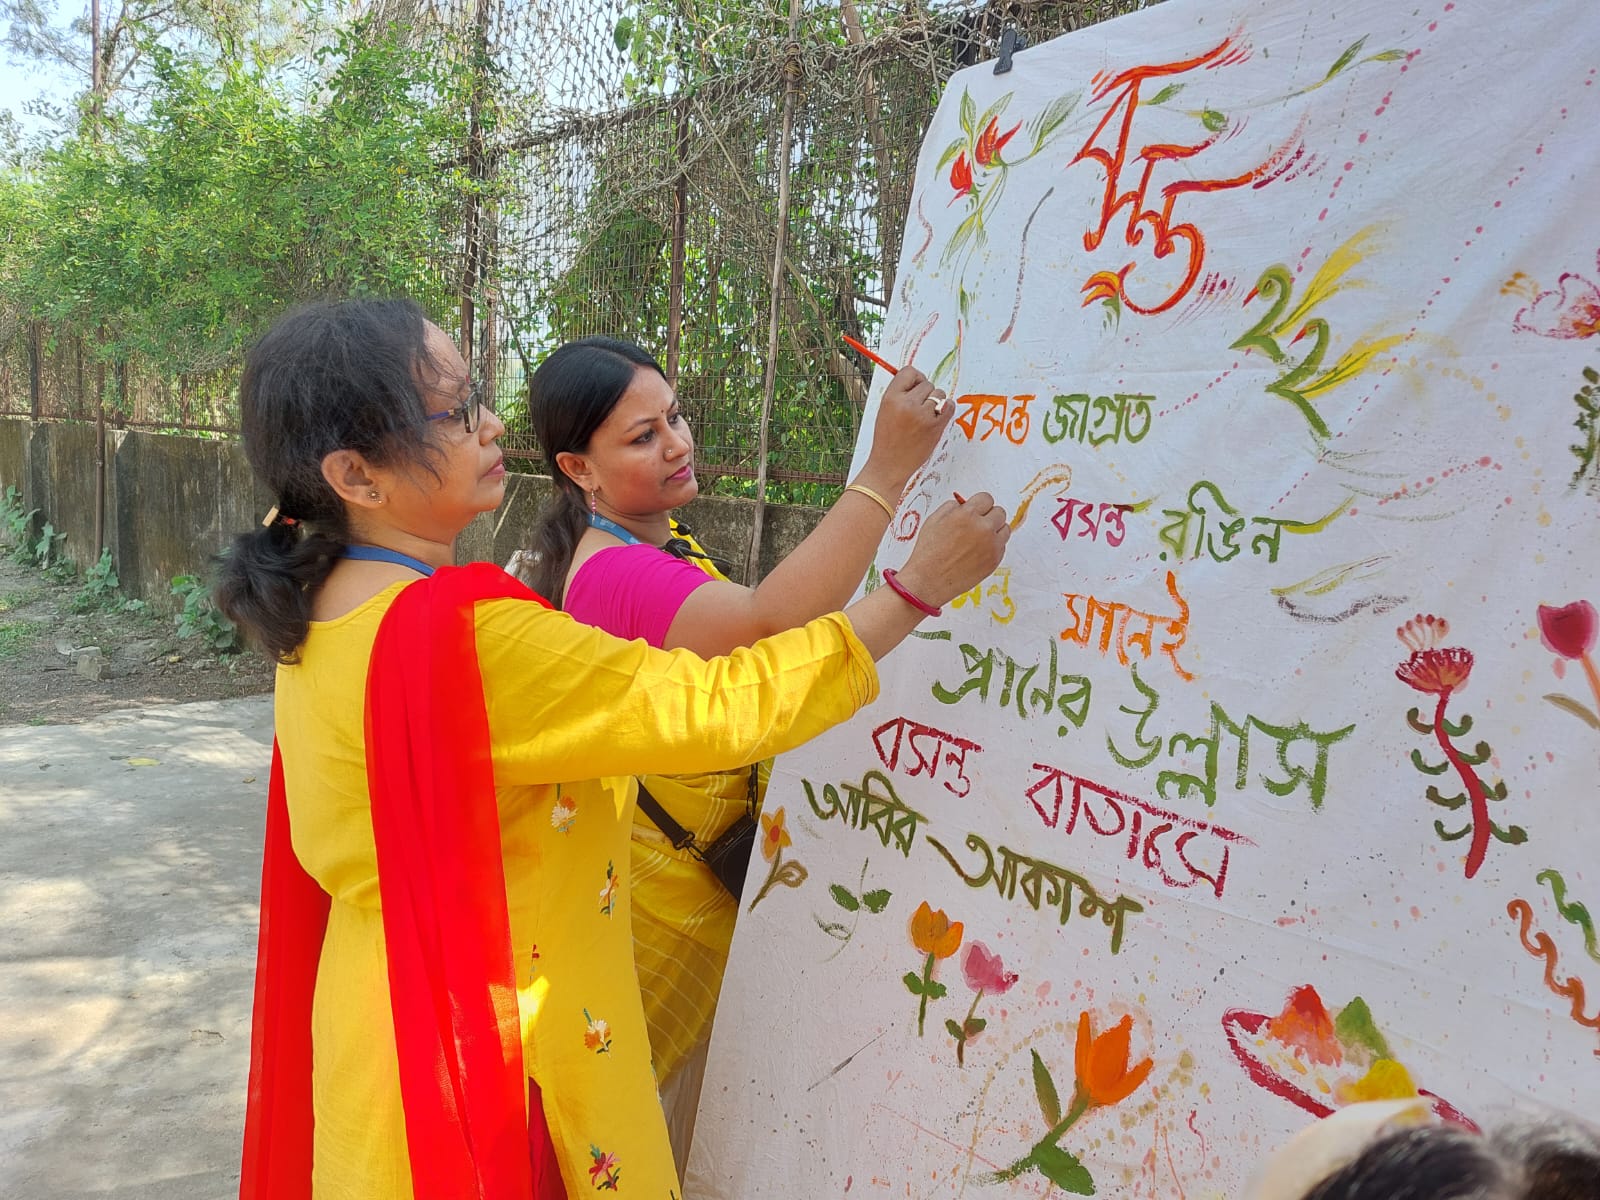 বসন্ত
বসন্ত জাগ্রত
বসন্ত রঙিন
মানেই
প্রাণের উল্লাস
বসন্ত বাতাসে
আবির আকাশ